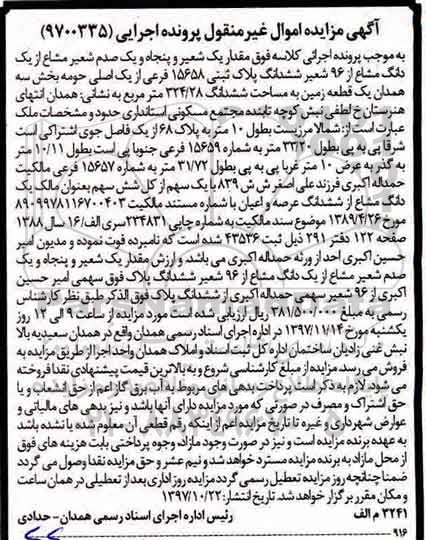 آگهی مزایده اموال غیرمنقول پرونده اجرایی (۹۷۰۰۳۳۵)
به موجب پرونده اجرائی کلاسه فوق مقدار یک شعیر و پنجاه و یک صدم شعیر مشاع از یک
دانگ مشاع از ۹۶ شعیر ششدانگ پلاک ثبتی ۱۵۶۵۸ فرعی از یک اصلی حومه بخش سه
همدان یک قطعه زمین به مساحت ششدانگ ۳۲۴/۲۸ متر مربع به نشانی: همدان انتهای
هنرستان خ لطفی نبش کوچه تابنده مجتمع مسکونی استانداری حدود و مشخصات ملک
عبارت است از: شمالا مرزیست بطول ۱۰ متر به پلاک ۶۸ از یک فاصل جوی اشتراکی است
شرقا پی به پی بطول ۳۳/۲۰ متر به شماره ۱۵۶۵۹ فرعی جنوبا پی است بطول ۱۰/۱۱ متر
به گذر به عرض ۱۰ متر غربا پی به پی بطول ۳۱/۷۲ متر به شماره ۱۵۶۵۷ فرعی مالکیت
حمداله اکبری فرزند علی اصغر ش ش ۸۳۹ با یک سهم از کل شش سهم بعنوان مالک یک
دانگ مشاع از ششدانگ عرصه و اعیان با شماره مستند مالکیت ۸۹۰۹۹۷۸۱۱۶۷۰۰۴۰۳
مورخ ۱۳۸۹/۴/۲۶ موضوع سند مالکیت به شماره چاپی ۲۳۴۸۳۱ سری الف/۱۶ سال ۱۳۸۸
صفحه ۱۲۲ دفتر ۲۹۱ ذیل ثبت ۴۳۵۳۶ شده است که نامبرده فوت نموده و مدیون امیر
حسین اکبری احد از ورثه حمداله اکبری می باشد و ارزش مقدار یک شعیر و پنجاه و یک
صدم شعیر مشاع از یک دانگ مشاع از ۹۶ شعیر ششدانگ پلاک فوق سهمی امیر حسین
اکبری از ۹۶ شعیر سهمی حمداله اکبری از ششدانگ پلاک فوق الذکر طبق نظر کارشناس
رسمی به مبلغ ۳۸۱/۵۰۰/۰۰۰ ریال ارزیابی شده است مورد مزایده از ساعت ۹ الی ۱۲ روز
یکشنبه مورخ ۱۳۹۷/۱۱/۱۴ در اداره اجرای اسناد رسمی همدان واقع در همدان سعیدیه بالا
نبش غنی زادیان ساختمان اداره کل ثبت اسناد و املاک همدان واحد اجرا از طریق مزایده به
فروش می رسد مزایده از مبلغ کارشناسی شروع و به بالاترین قیمت پیشنهادی نقدا فروخته
می شود. لازم به ذکر است پرداخت بدهی های مربوط به آب برق گاز اعم از حق انشعاب و یا
حق اشتراک و مصرف در صورتی که مورد مزایده دارای آنها باشد و نیز بدهی های مالیاتی و
عوارض شهرداری و غیره تا تاریخ مزایده اعم از اینکه رقم قطعی آن معلوم شده یا نشده باشد
به عهده برنده مزایده است و نیز در صورت وجود مازاد، وجوه پرداختی بابت هزینه های فوق
از محل مازاد به برنده مزایده مسترد خواهد شد و نیم عشر و حق مزایده نقدا وصول می گردد
ضمنا چنانچه روز مزایده تعطیل رسمی گردد مزایده روز اداری بعد از تعطیلی در همان ساعت
و مکان مقرر برگزار خواهد شد. تاریخ انتشار: ۱۳۹۷/۱۰/۲۲
۳۲۴۱ م الف رئیس اداره اجرای اسناد رسمی همدان - حدادی
۹۱۶